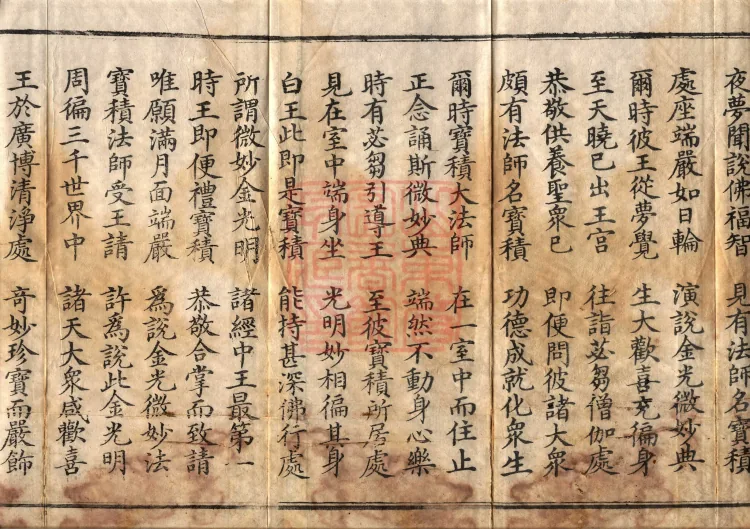 夜夢聞說佛福智 見有法師名寶積
處座端嚴如日輪 演說金光微妙典
爾時彼王從夢覺 生大歡喜充徧身
至天曉已出王宮 往詣苾芻僧伽處
恭敬供養聖眾已 即便問彼諸大眾
頗有法師名寶積 功德成就化眾生
爾時寶積大法師 在一室中而住止
正念誦斯微妙典 端然不動身心樂
時有苾芻引導王 至彼寶積所居處
見在室中端身坐 光明妙相徧其身
白王此即是寶積 能持甚深佛行處
所謂微妙金光明 諸經中王最第一
時王即便禮寶積 恭敬合掌而致請
唯願滿月面端嚴 為說金光微妙法
寶積法師受王請 許為說此金光明
周徧三千世界中 諸天大眾咸歡喜
王於廣博清淨處 奇妙珍寶而嚴飾